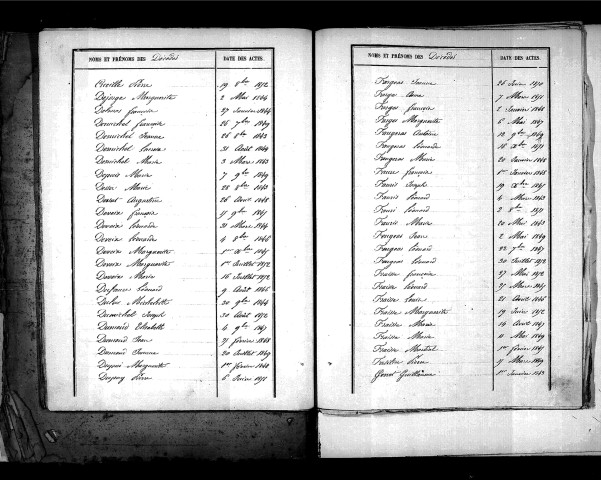 NOMS ET PRÉNOMS DES Décédés DATE DES ACTES.
Cueille Pierre 19 8bre 1872
Dejonge Marguerite 2 Mai 1864
Delmas François 27 Janvier 1864
Demichel François 26 7bre 1869
Demichel Jeanne 26 8bre 1863
Demichel 31 Août 1869
Demichel Marie 3 Mars 1863
Depuis Marie 7 9bre 1869
Marie 28 8bre 1863
Augustine 26 Avril 1868
Devoix François 17 9bre 1867
Devoix Léonarde 31 Mars 1864
Devoix Léonarde 4 8bre 1866
Devoix Marguerite 1er Xbre 1867
Devoix Marguerite 1er Juillet 1872
Devoix Marie 16 Juillet 1872
Léonard 9 Août 1865
Michelette 30 9bre 1864
Dumichel Joseph 30 Août 1872
Dumond Elisabeth 4 9bre 1867
Dumond Jean 21 février 1868
Dumond Jeanne 20 Juillet 1869
Dupuis Marguerite 1er février 1868
Dupuy Pierre 6 février 1871
NOMS ET PRÉNOMS DES Décédés DATE DES ACTES.
Farges Jeanne 26 février 1870
Farge 7 Mars 1871
Farges François 2 Janvier 1868
Farges Marguerite 6 Mai 1867
Faugeras Antoine 12 9bre 1869
Faugeras Léonarde 18 Xbre 1871
Faugeras Marie 20 Janvier 1866
François 1er Janvier 1865
Fauris Joseph 19 Xbre 1867
Fauris Léonard 4 Mars 1863
Léonard 2 8bre 1871
Fauris Marie 20 Mai 1863
Faugeras Jean 2 Mai 1869
Faugeras Léonard 22 7bre 1867
Faugeras Léonard 30 Juillet 1872
Fraisse François 27 Mai 1872
Fraisse Léonard 27 Mars 1867
Fraisse Louise 21 Août 1866
Fraisse Marguerite 19 Juin 1872
Fraisse Marie 14 Août 1867
Fraisse Marie 11 Mai 1869
Fraisse Martial 1er février 1867
Pierre 17 Mars 1869
Guillaume 1er Janvier 1863